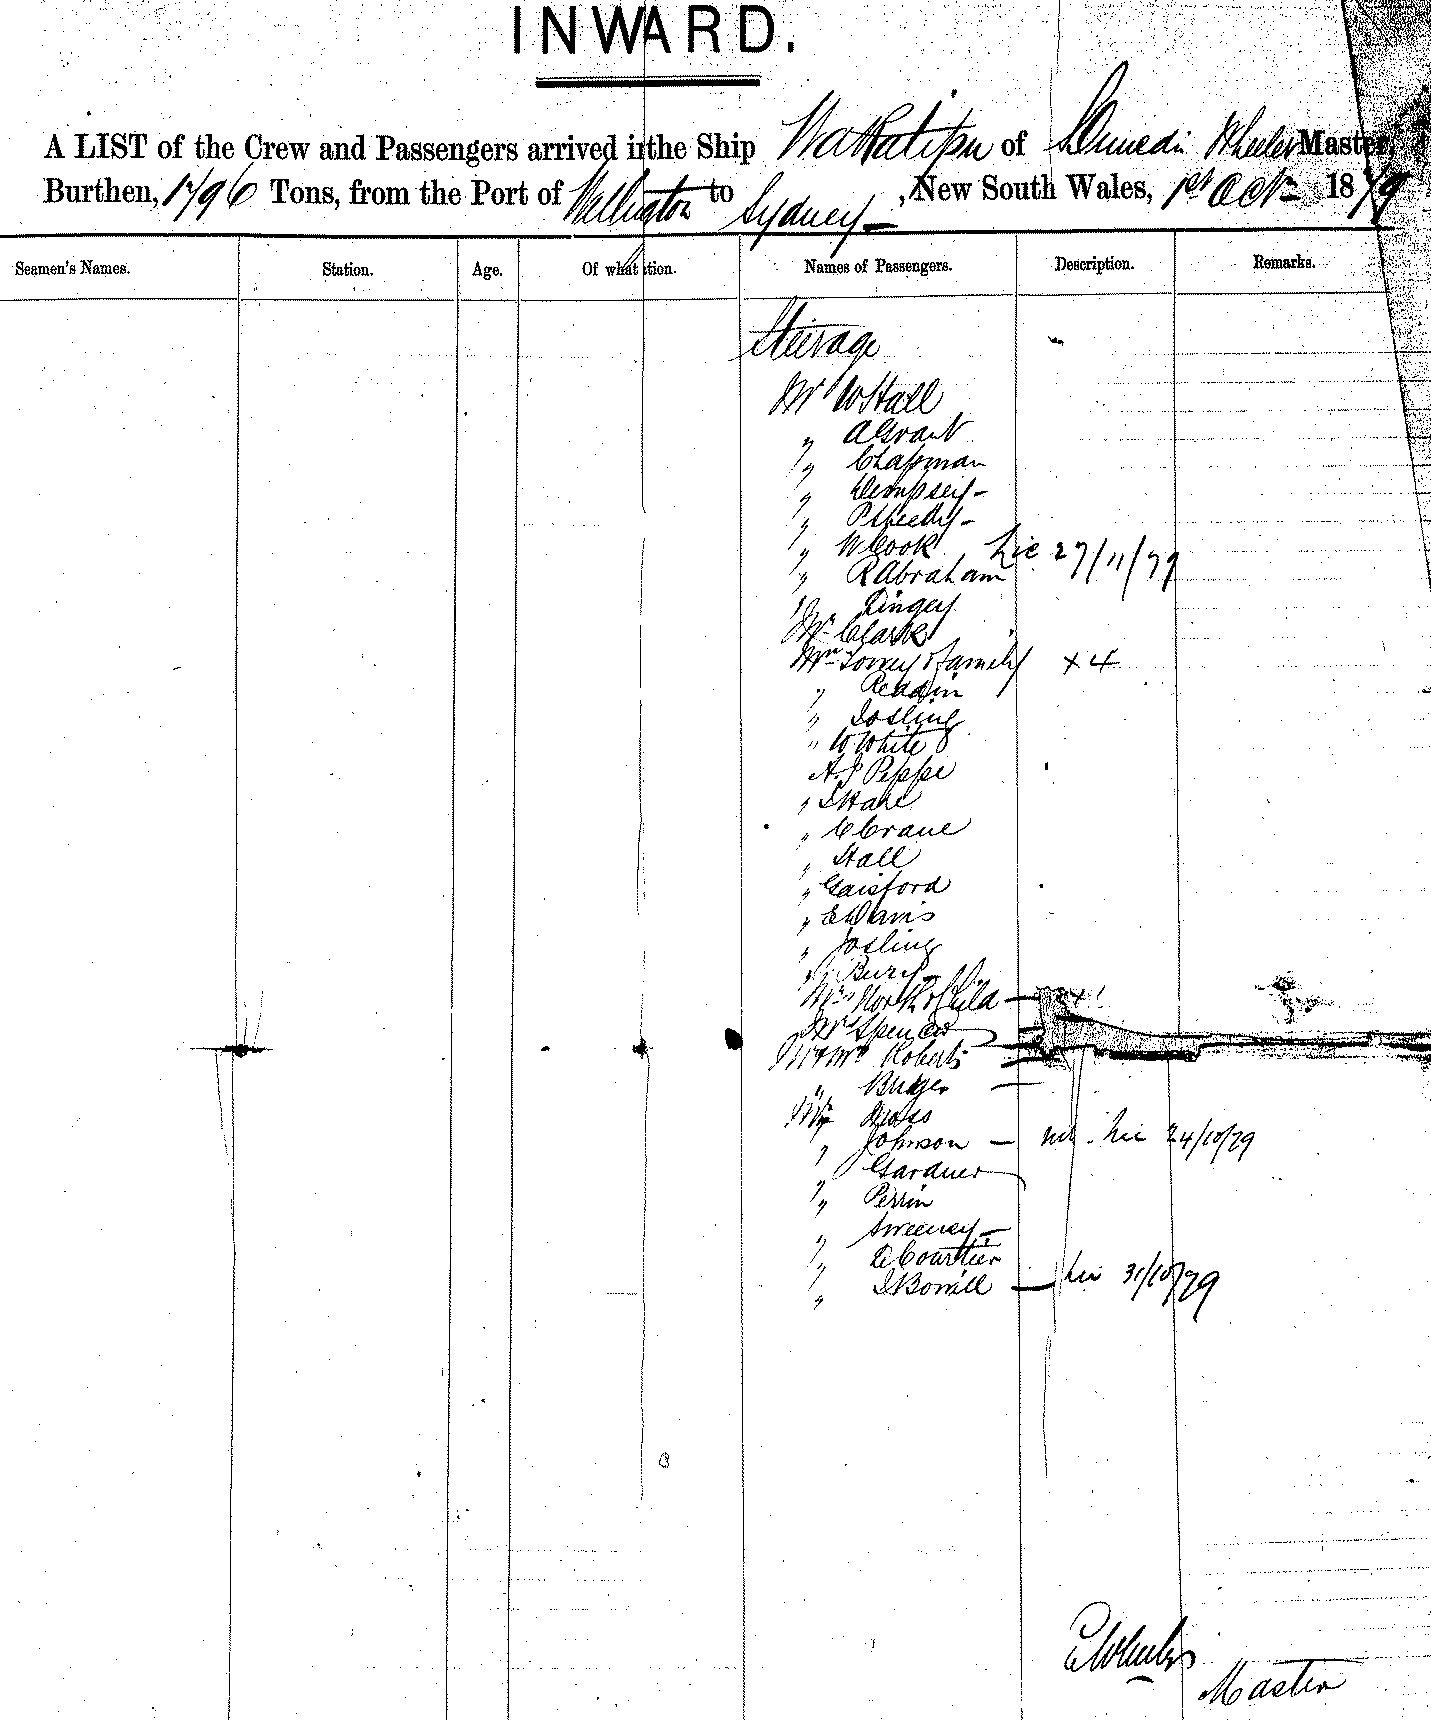 INWARD.
A LIST of the Crew and Passengers arrived in the Ship Wakatipu of Dunedin Wheeler Master,
Burthen, 1796 Tons, from the Port of Wellington to Sydney, New South Wales, 1st Oct 1879
Seamen's Names. Station. Age. Of what tion. Names of Passengers. Description. Remarks.
Steerage
Mr W Hall
" A Grant
" Chapman
" Dempsey
" P Sheedy
" W Cook lic 27/11/79
" R Abraham
" Dingey
Mr Clark
family x 4
" Reddin
" Josling
" W White
A J Peppe
" Hare
" C Crane
" Hall
" Gaisford
" E Davis
" Josling
" Bury
Mrs North & Child
Mr Spencer
Mr & Mrs Roberts
"
Mr Moss
" Johnson — lic 24/10/79
" Gardner
" Perrin
" Sweeney
" Courtier
" — lic 31/10/79
E Wheeler
Master